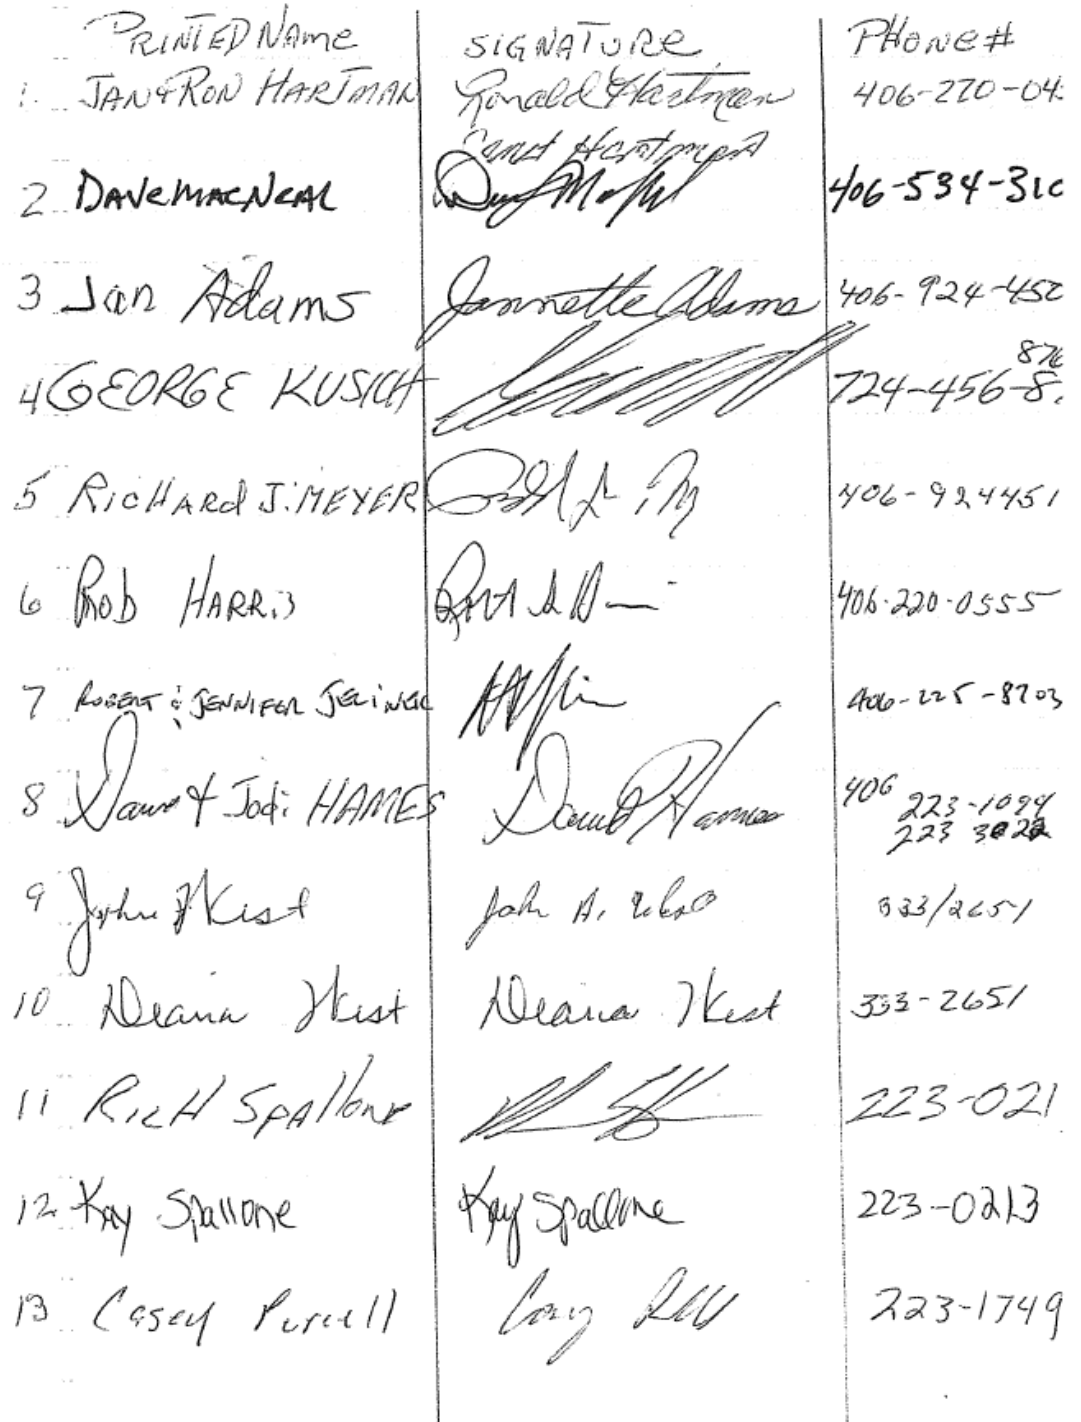 PRINTED NAME SIGNATURE PHONE#
1. JAN & RON HARTMAN Ronald Hartman 406-220-04
Janet Hartman
2 DAVE MACNEAL 406-534-310
3 Jan Adams Jannette Adams 406-924-450
876
4 GEORGE KUSICH 724-456-8
5 RICHARD J. MEYER 406-924451
6 Rob HARRIS 406-220-0555
7 ROBERT & JENNIFER JELINEK 406-225-8703
8 & Jodi HAMES David Hames 406 223-1094
223
9 John Kist John A. 333/2651
10 Deana Kist Deana Kist 333-2651
11 RICH SPALLONE 223-021
12 Kay Spallone Kay Spallone 223-0213
13 Casey Purcell 223-1749